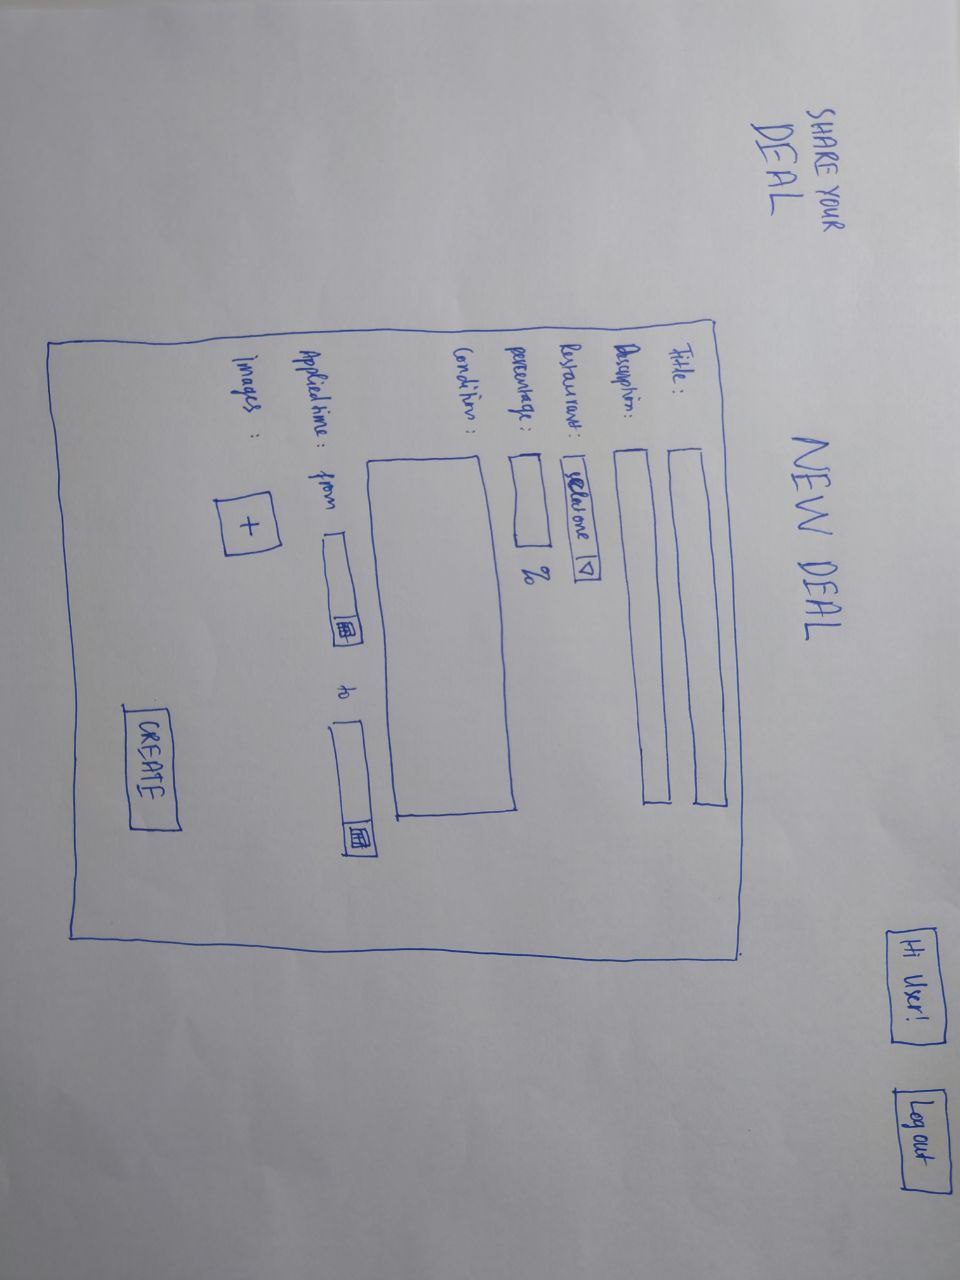 Hi User!
Log out
SHARE YOUR
DEAL
NEW DEAL
Title:
Description:
Restaurant: select one
percentage: %
Condition:
Applied time: from to
images: +
CREATE